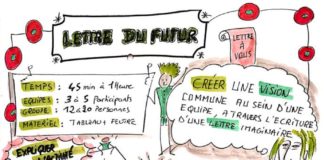 LETTRE DU FUTUR
LETTRE
À
VOUS
TEMPS : 45 min à 1 Heure
EQUIPES : 3 à 5 participants
GROUPE : 12 à 20 Personnes
MATERIEL : TABLEAU + FEUTRE
CRÉER UNE VISION
COMMUNE AU SEIN D'UNE
EQUIPE, À TRAVERS L'ÉCRITURE
D'UNE LETTRE IMAGINAIRE
EXPLIQUER